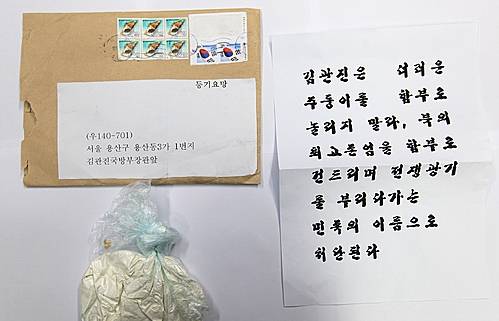 등기요망
(우140-701)
서울 용산구 용산동3가 1번지
김관진국방부장관앞
김관진은 더러운
주둥이를 함부로
놀리지 말라, 북의
최고존엄을 함부로
건드리며 전쟁광기
를 부리다가는
민족의 이름으로
처단된다